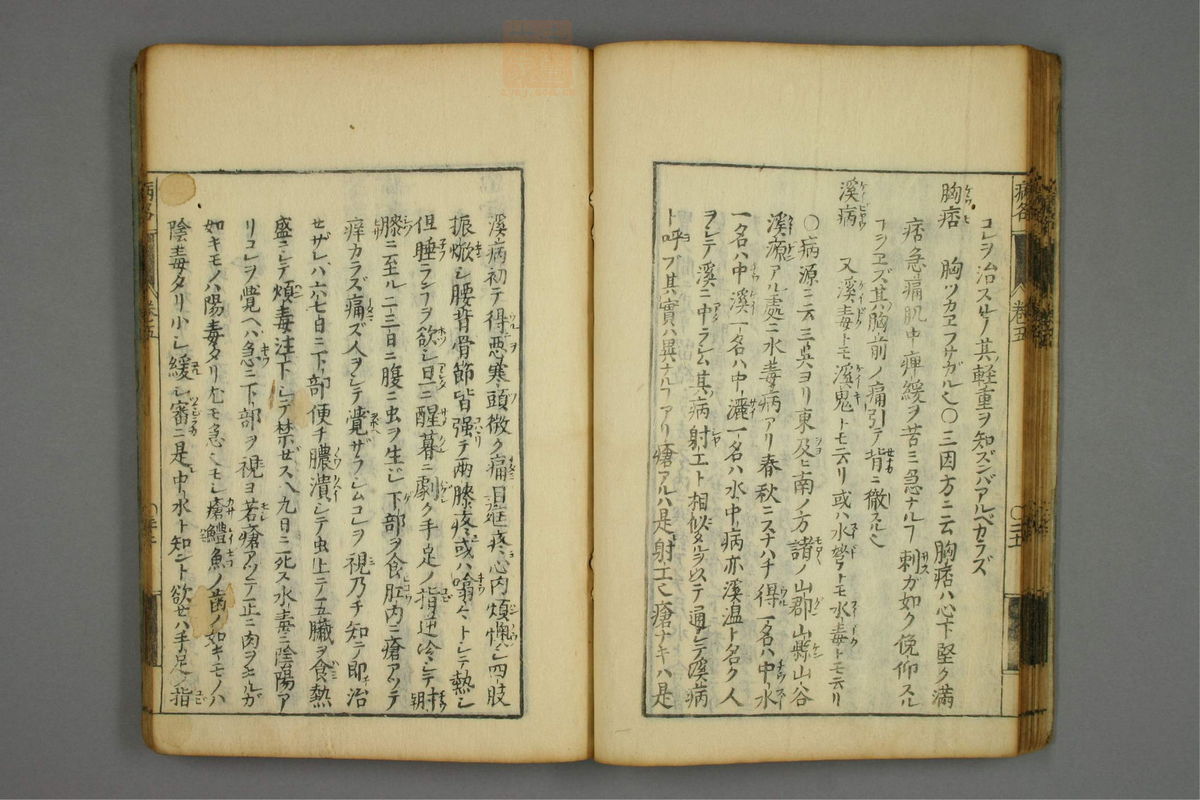 コレヲ治スルノ其軽重ヲ知ズンバアルベカラズ
胸痞 胸ツカヱフサガル也〇三因方ニ云胸痞ハ心下堅ク満
痞急痛肌中痺緩ヲ苦ミ急ナルフ刺ガ如ク俛仰スル
フヲヱズ其胸前ノ痛引テ背ニ徹スル也
溪病 又溪毒トモ溪鬼トモ云リ或ハ水弩トモ水毒トモ云リ
〇病源ニ云三呉ヨリ東及ヒ南ノ方諸ノ山郡山縣山谷
溪源アル處ニ水毒病アリ春秋ニスナハチ得一名ハ中水
一名ハ中溪一名ハ中灑一名ハ水中病亦溪温ト名ク人
ヲシテ溪ニ中ラシム其病射工ト相似タルヲ以テ通シテ溪病
ト呼ブ其實ハ異ナルフアリ瘡アルハ是射工也瘡ナキハ是
溪病初テ得惡寒頭微ク痛目眶疼心内煩懊シ四肢
振焮シ腰背骨節皆强テ両膝疼或ハ噏々トシテ熱シ
但睡ランフヲ欲シ旦ニ醒暮ニ劇ク手足ノ指逆冷シテ肘
膝ニ至ル二三日ニ腹ニ虫ヲ生シ下部ヲ食肛内ニ瘡アツテ
痒カラズ痛ズ人ヲシテ覺ザラシムコレヲ視乃チ知ノミ即治
せザレハ六七日ニ下部便チ膿潰シテ虫上テ五臓ヲ食熱
盛ニシテ煩毒注下シテ禁ゼス八九日ニ死ス水毒ニ陰陽ア
リコレヲ覺ヘハ急ニ下部ヲ視ヨ若瘡アツテ正ニ肉ヲキルガ
如キモノハ陽毒タリ尤モ急也モシ瘡鱧魚ノ歯ノ如キモノハ
陰毒タリ小シ緩シ審ニ是中水ト知ント欲せハ手足ノ指
病名
巻五